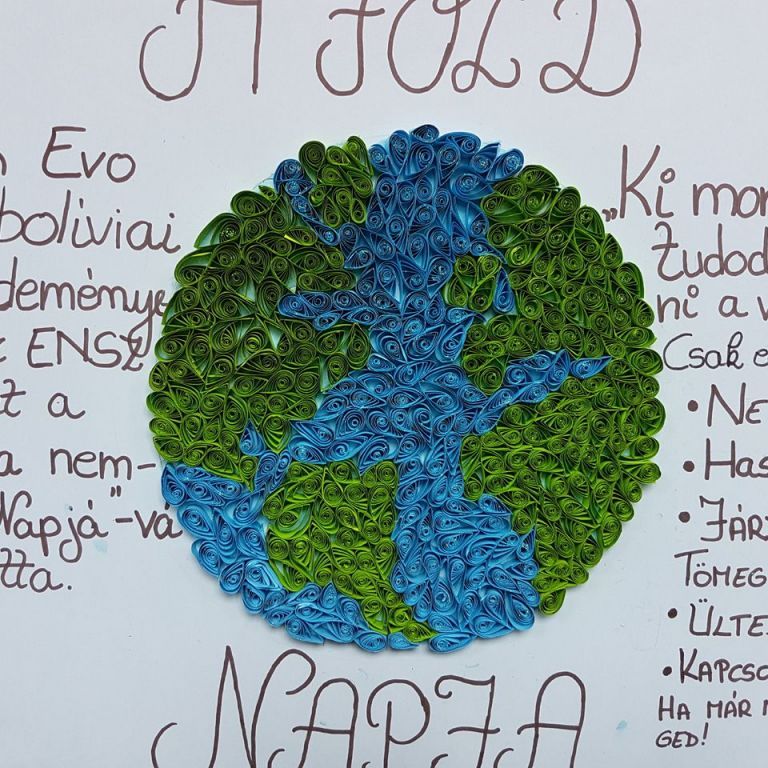 A FÖLD
Evo
boliviai
deménye
ENSZ
t a
a nem-
Napjá"-vá
tta.
„Ki mon
tudod
ni a v
Csak e
• NE
• HAS
• JÁR
TÖMEG
• ÜLTE
• KAPCSO
HA MÁR N
GED!
NAPJA